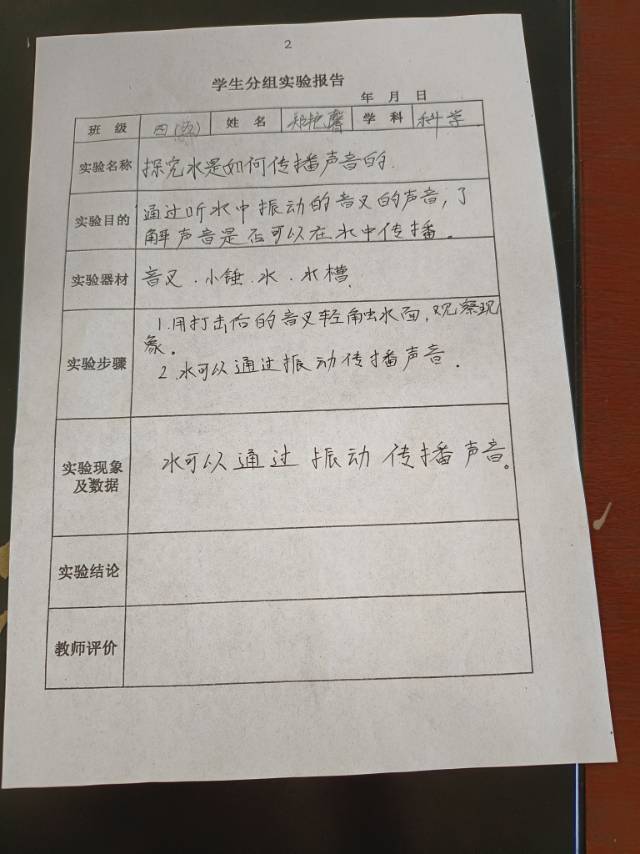 2
学生分组实验报告
年 月 日
班 级 四(五) 姓 名 学 科 科学
实验名称 探究水是如何传播声音的.
实验目的 通过听水中振动的音叉的声音,了
解声音是否可以在水中传播。
实验器材 音叉.小锤.水.水槽.
实验步骤 1.用打击后的音叉轻触水面,观察现
象。
2.水可以通过振动传播声音.
实验现象
及数据 水可以通过振动传播声音。
实验结论
教师评价